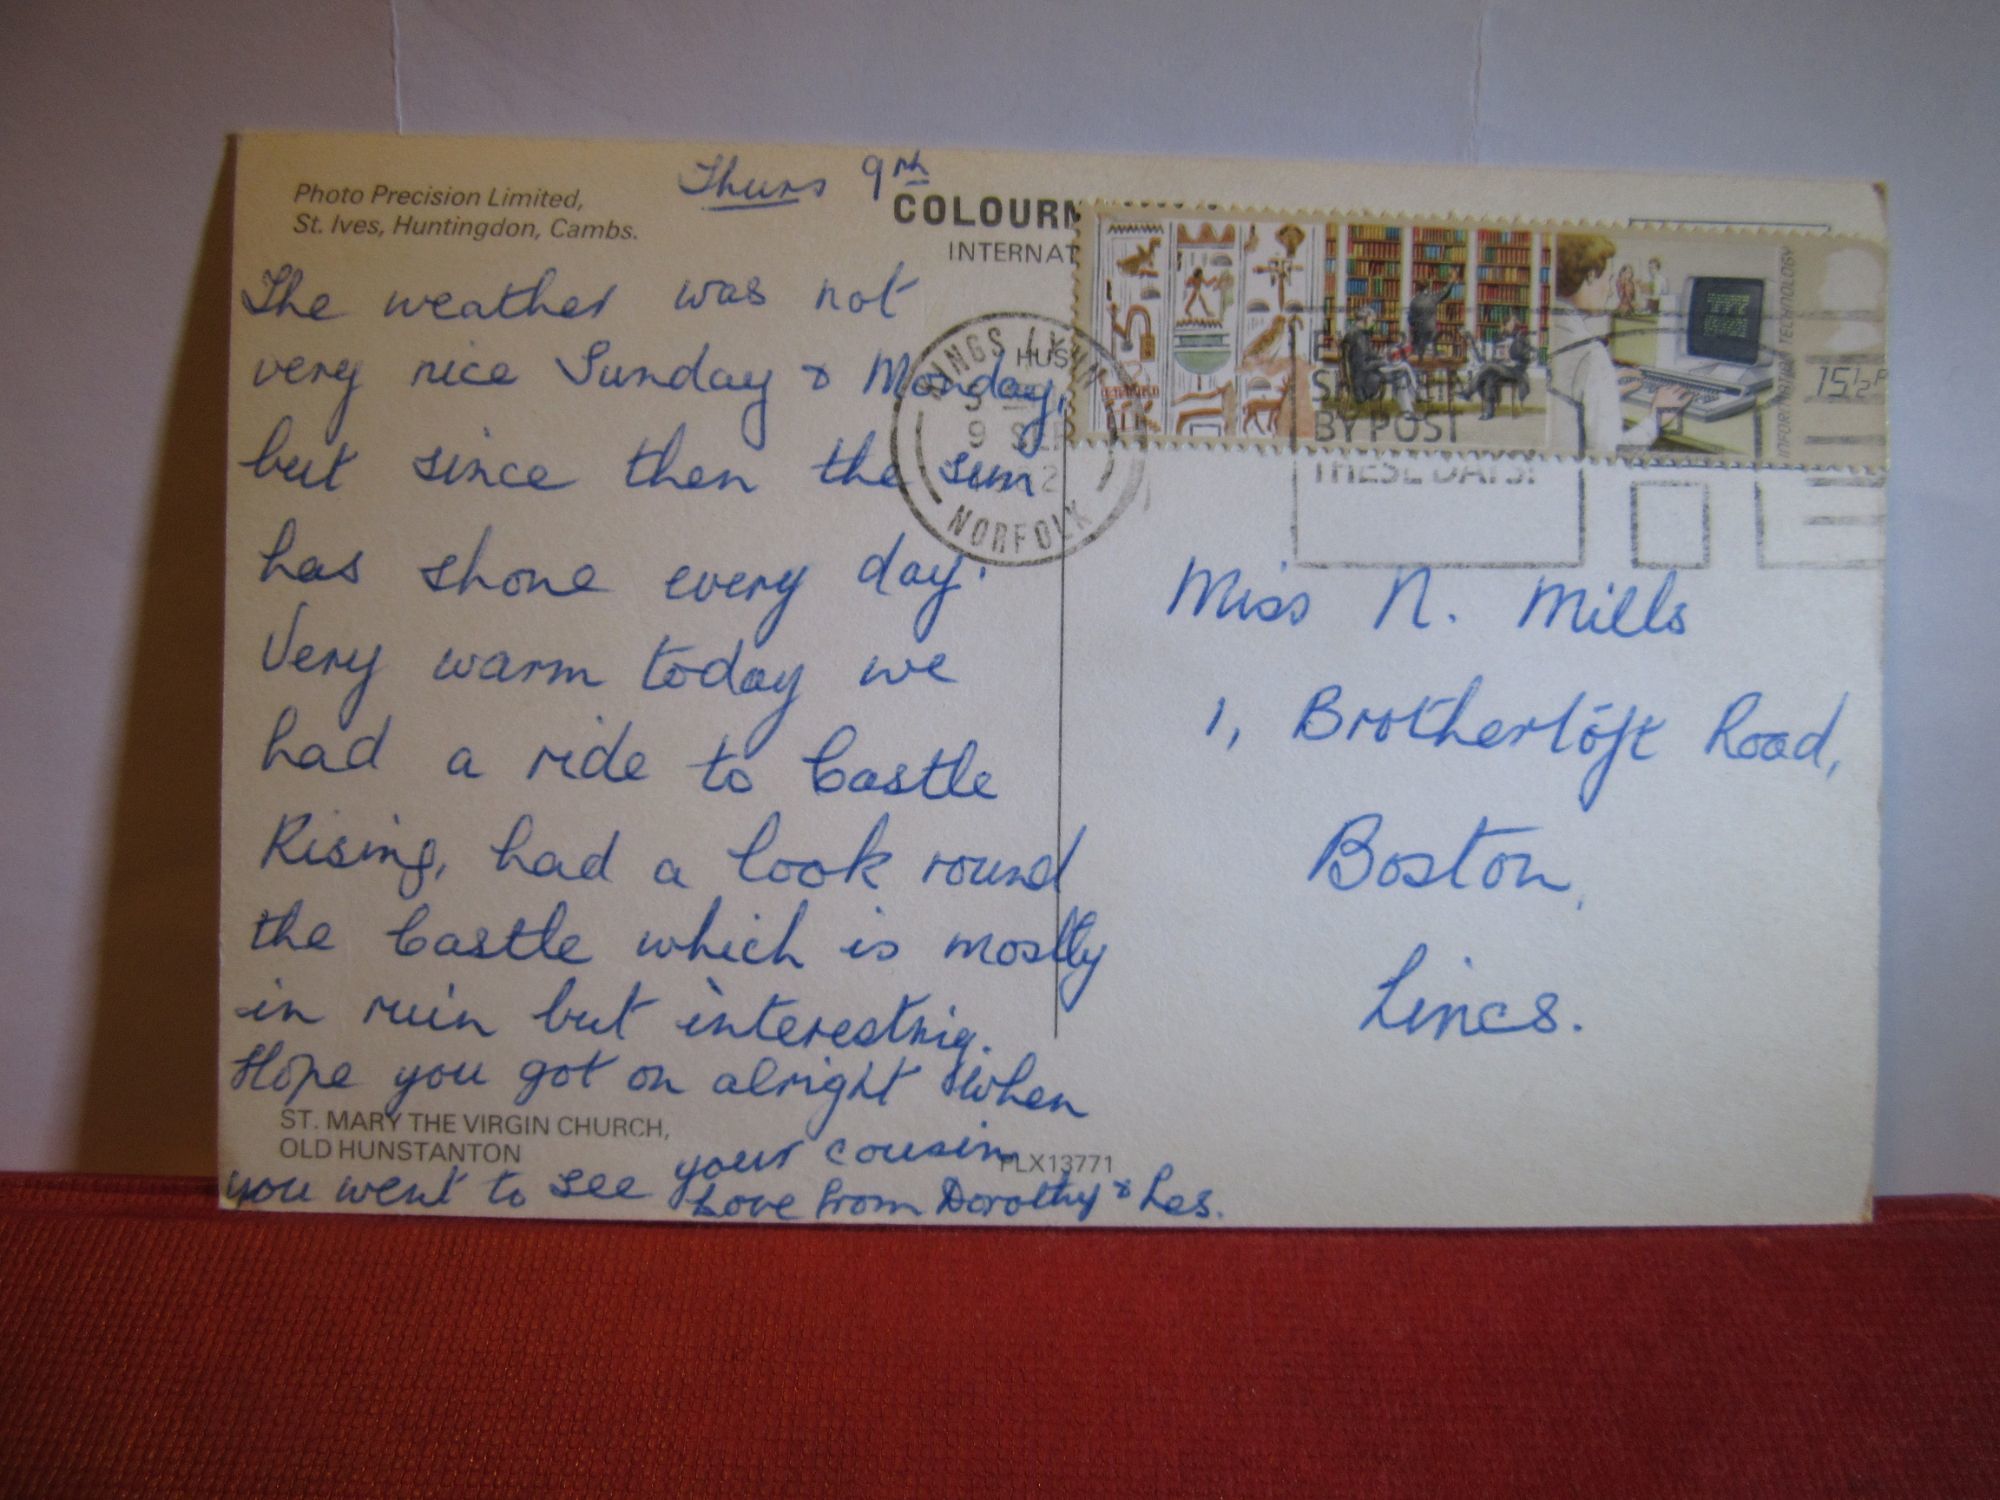 Photo Precision Limited,
St. Ives, Huntingdon, Cambs.
Thurs 9th
COLOURM
INTERNAT
The weather was not
very nice Sunday & Monday,
but since then the sun
has shone every day.
Very warm today we
had a ride to Castle
Rising, had a look round
the Castle which is mostly
in ruin but interesting.
Hope you got on alright when
you went to see your cousin
Love from Dorothy & Les.
ST. MARY THE VIRGIN CHURCH,
OLD HUNSTANTON
PLX13771
KINGS LYNN
HUS
9 SEP
NORFOLK
BY POST
THESE DAYS!
INFORMATION TECHNOLOGY
15½P
Miss N. Mills
1, Brothertoft Road,
Boston,
Lincs.